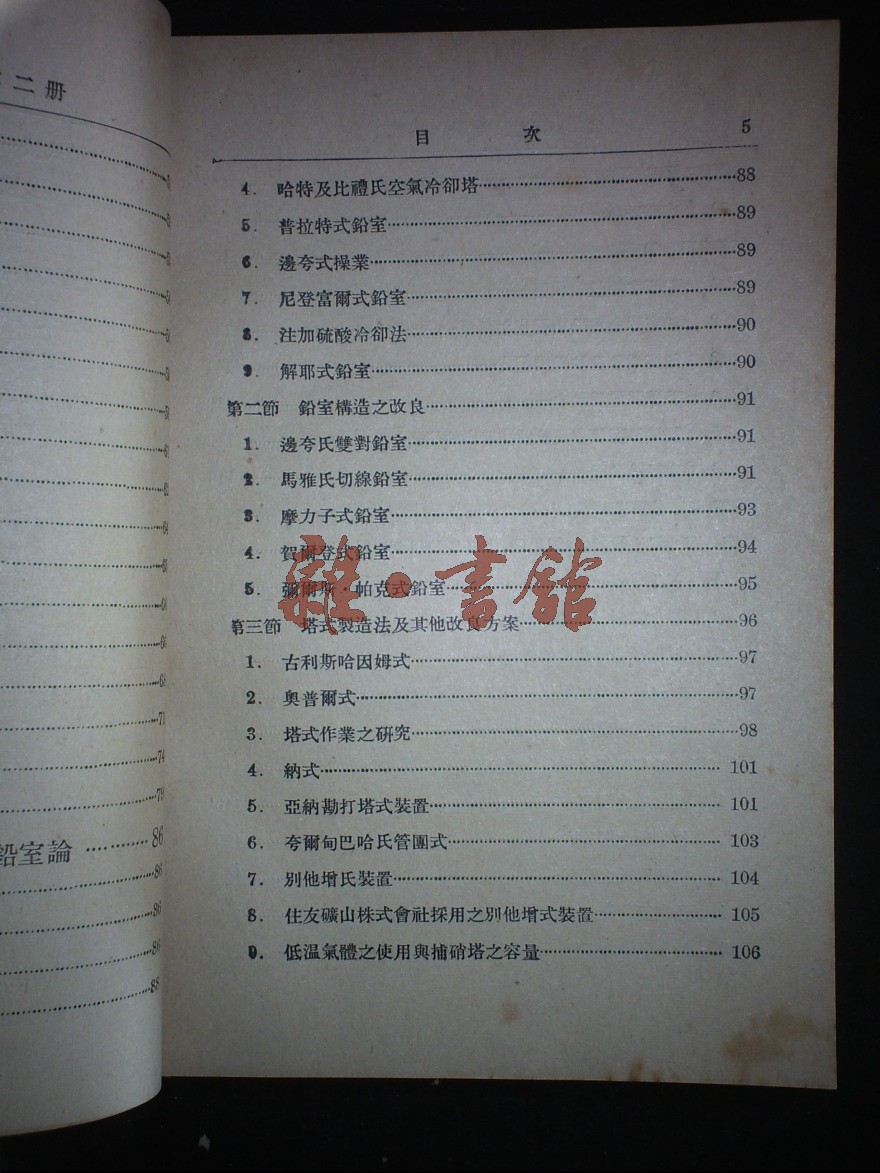 二册
51
61
62
64
68
66
68
71
74
79
鉛室論 ………… 86
86
86
86
88
目 次 5
4. 哈特及比禮氏空氣冷卻塔……88
5. 普拉特式鉛室……89
6. 邊夸式操業……89
7. 尼登富爾式鉛室……89
8. 注加硫酸冷卻法……90
9. 解耶式鉛室……90
第二節 鉛室構造之改良……91
1. 邊夸氏雙對鉛室……91
2. 馬雅氏切線鉛室……91
3. 摩力子式鉛室……93
4. 賀爾登式鉛室……94
5. 彌爾斯·帕克式鉛室……95
雜·書館
第三節 塔式製造法及其他改良方案……96
1. 古利斯哈因姆式……97
2. 奧普爾式……97
3. 塔式作業之研究……98
4. 納式……101
5. 亞納勘打塔式裝置……101
6. 夸爾甸巴哈氏管團式……103
7. 別他增氏裝置……104
8. 住友礦山株式會社採用之別他增式裝置……105
9. 低温氣體之使用與捕硝塔之容量……106